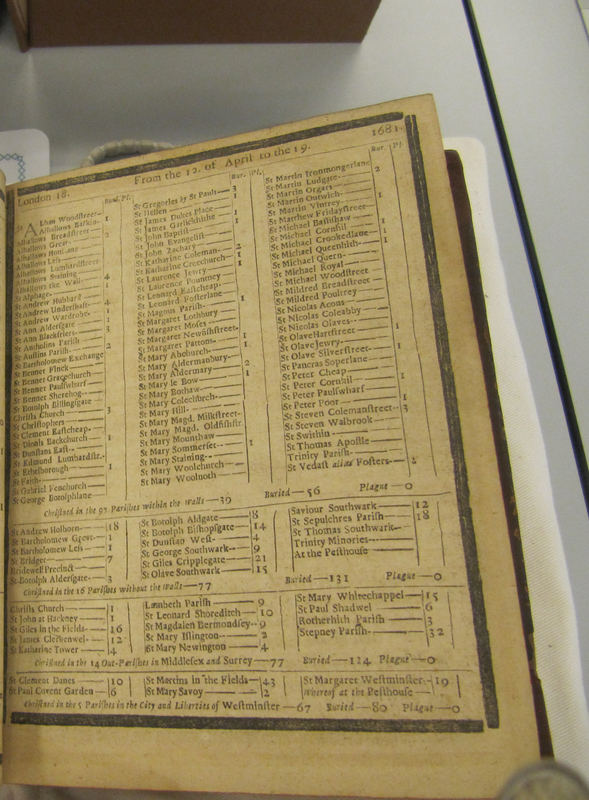 London 18. From the 12. of April to the 19. 1681.
Bur. Pl.
Alban Woodstreet
Alhallows Barkin 1
Alhallows Breadstreet 2
Alhallows Great
Alhallows Honilane
Alhallows Less
Alhallows Lumbardstreet
Alhallows Staining 4
Alhallows the Wall 1
St Alphage
St Andrew Hubbard 4
St Andrew Undershaft
St Andrew Wardrobe
St Ann Aldersgate
St Ann Blackfriers 3
St Antholins Parish
St Austins Parish 2
St Bartholomew Exchange
St Bennet Finck
St Bennet Gracechurch
St Bennet Paulswharf
St Bennet Sherehog
St Botolph Billingsgate
Christs Church 3
St Christophers
St Clement Eastcheap
St Dionis Backchurch 1
St Dunstans East
St Edmund Lumbardstr.
St Ethelborough 1
St Faith
St Gabriel Fenchurch
St George Botolphlane
Bur. Pl.
St Gregories by St Pauls 3
St Hellen 1
St James Dukes Place 1
St James Garlickhithe 1
St John Baptist
St John Evangelist
St John Zachary
St Katharine Coleman 2
St Katharine Creechurch 1
St Laurence Jewry 1
St Laurence Pountney
St Leonard Eastcheap
St Leonard Fosterlane 1
St Magnus Parish
St Margaret Lothbury
St Margaret Moses
St Margaret Newfishstreet
St Margaret Pattons 1
St Mary Abchurch
St Mary Aldermanbury
St Mary Aldermary 2
St Mary le Bow 1
St Mary Bothaw
St Mary Colechurch
St Mary Hill
St Mary Magd. Milkstreet
St Mary Magd. Oldfishstr
St Mary Mounthaw
St Mary Somerset 1
St Mary Staining
St Mary Woolchurch
St Mary Woolnoth
Bur. Pl.
St Martin Ironmongerlane
St Martin Ludgate 2
St Martin Orgars
St Martin Outwich 1
St Martin Vintrey
St Matthew Fridaystreet
St Michael Bassishaw
St Michael Cornhil 1
St Michael Crookedlane 1
St Michael Queenhith 1
St Michael Quern
St Michael Royal
St Michael Woodstreet
St Mildred Breadstreet
St Mildred Poultrey
St Nicolas Acons
St Nicolas Coleabby
St Nicolas Olaves
St Olave Hartstreet 1
St Olave Jewry
St Olave Silverstreet 1
St Pancras Soperlane
St Peter Cheap
St Peter Cornhil 1
St Peter Paulswharf
St Peter Poor 1
St Steven Colemanstreet 3
St Steven Walbrook
St Swithin
St Thomas Apostle
Trinity Parish
St Vedast alias Fosters 2
Christned in the 97 Parishes within the Walls 39 Buried 56 Plague 0
St Andrew Holborn 18
St Bartholomew Great 1
St Bartholomew Less 1
St Bridget 7
Bridewel Precinct
St Botolph Aldersgate 3
St Botolph Aldgate 8
St Botolph Bishopsgate 14
St Dunstan West 4
St George Southwark 9
St Giles Cripplegate 21
St Olave Southwark 15
Saviour Southwark 12
St Sepulchres Parish 18
St Thomas Southwark
Trinity Minories
At the Pesthouse
Christned in the 16 Parishes without the Walls 77 Buried 131 Plague 0
Christs Church 1
St John at Hackney 1
St Giles in the Fields 16
St James Clerkenwel 12
St Katharine Tower 4
Lambeth Parish 9
St Leonard Shoreditch 10
St Magdalen Bermondsey 9
St Mary Islington 2
St Mary Newington 4
St Mary Whitechappel 15
St Paul Shadwel 6
Rotherhith Parish 3
Stepney Parish 32
Christned in the 14 Out-Parishes in Middlesex and Surrey 77 Buried 124 Plague 0
St Clement Danes 10
St Paul Covent Garden 6
St Martins in the Fields 43
St Mary Savoy 2
St Margaret Westminster 19
Whereof at the Pesthouse
Christned in the 5 Parishes in the City and Liberties of Westminster 67 Buried 80 Plague 0